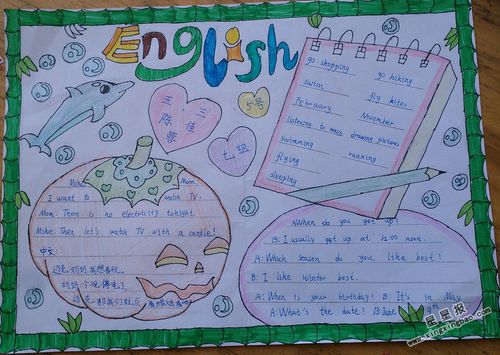 English
五.三
陈佳
蓉
5号
七组
go shopping go hiking
swim fly kites
February November
listening to music drawing pictures
swimming running
flying
sleeping
Mike: Mom.
I want to watch TV.
Mom: There is no electricity tonight.
Mike: Then let's watch TV with a candle!
中文:
迈克:妈妈,我想看
妈妈:今晚停电了
迈克:那我们就点
When do you get up?
B: I usually get up at 12:00 noon.
A: Which season do you like best?
B: I like winter best.
A: When is your birthday? B: It's in May.
A: What's the date? B: June 9th
星星报
www.xingxingbao.com